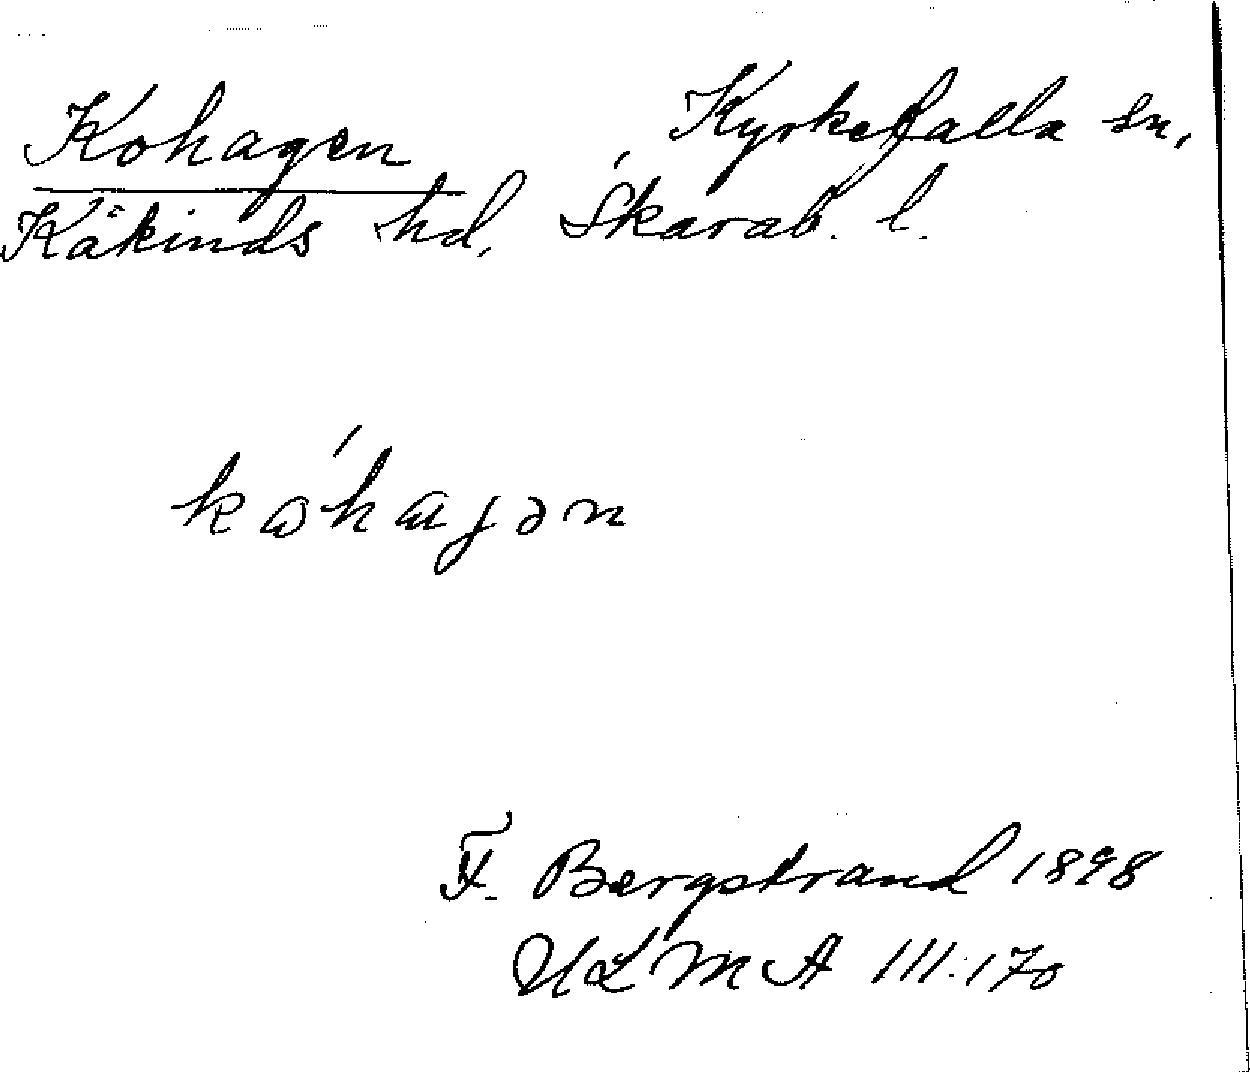 Kohagen Kyrkefalla sn,
Kåkinds hd, Skarab. l.
kóhagən
F. Bergstrand 1898
ULMA III:170